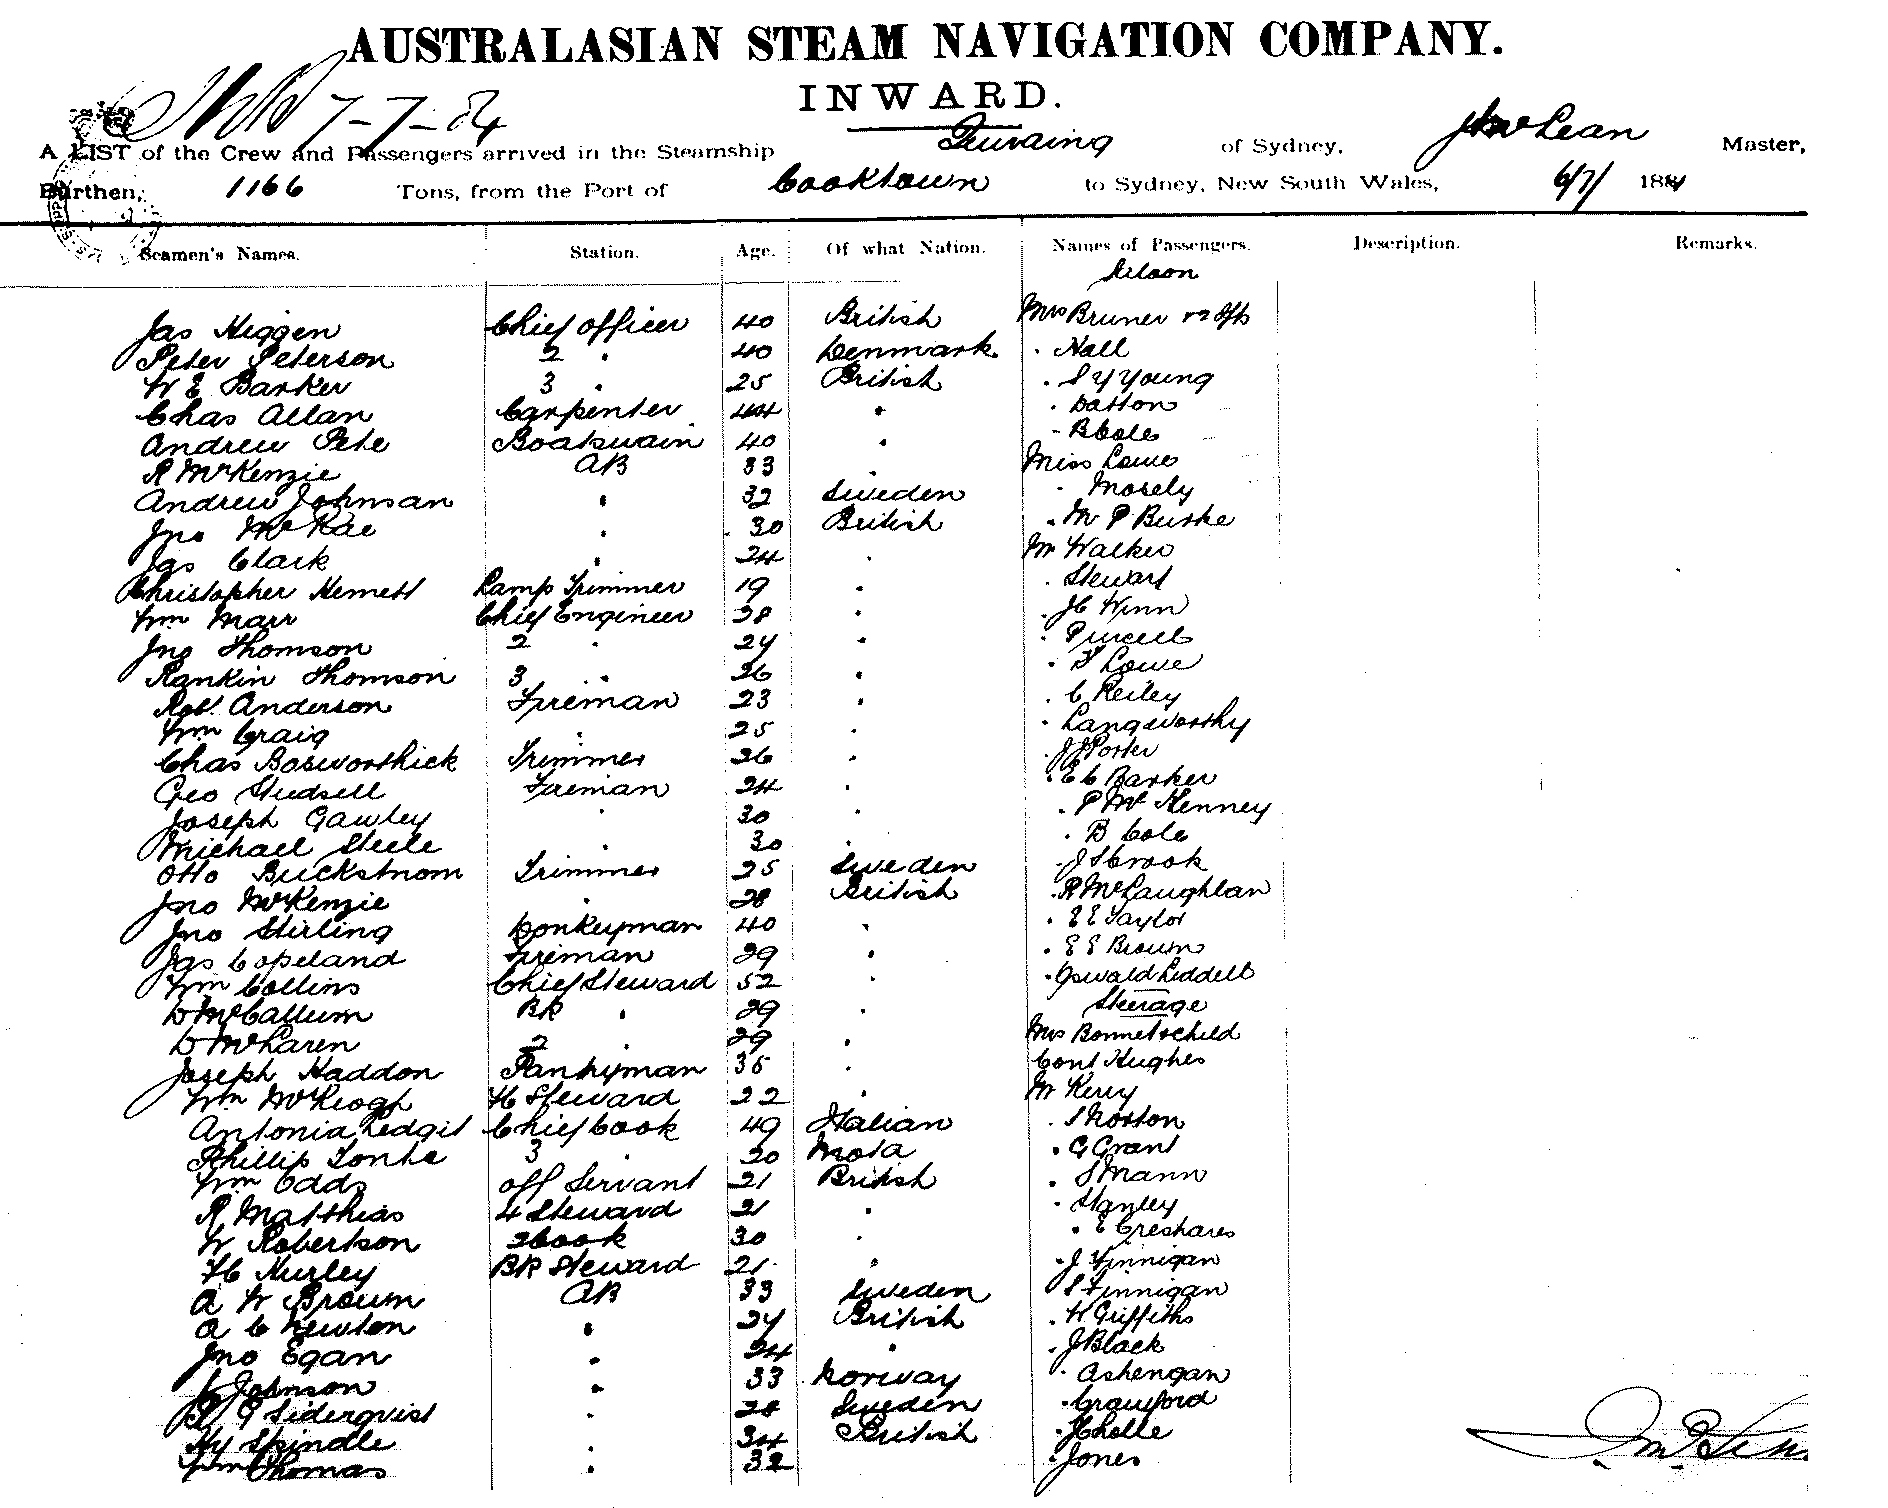 AUSTRALASIAN STEAM NAVIGATION COMPANY.
INWARD.
7-7-84
A LIST of the Crew and Passengers arrived in the Steamship Quiraing of Sydney, McLean Master,
Burthen, 1166 Tons, from the Port of Cooktown to Sydney, New South Wales, 6/7/ 1884
Seamen's Names. Station. Age. Of what Nation. Names of Passengers. Description. Remarks.
Saloon
Jas Heggen Chief Officer 40 British Mrs Bruner
Peter Peterson 2 " 40 Denmark " Hall
W E Barker 3 " 25 British " S Y Young
Chas Allan Carpenter 44 " " Datton
Andrew Pete Boatswain 40 " " B Cole
R McKenzie AB 33 " Miss Lowe
Andrew Johnson " 32 Sweden " Mosely
Jno McRae " 30 British " M P Burke
Jas Clark " 24 " Mr Walker
Christopher Kemett Lamp Trimmer 19 " " Stewart
Wm Marr Chief Engineer 28 " " J C Winn
Jno Thomson 2 " 24 " " Purcell
Rankin Thomson 3 " 26 " " Lowe
Robt Anderson Fireman 23 " " C Reiley
Wm Craig " 25 " " Langworthy
Chas Bosworthick Trimmer 26 " " J J Porter
Geo Studsell Fireman 24 " " E C Barker
Joseph Gawley " 30 " " P McKenney
Michael Steele " 30 " " B Cole
Otto Buckstrom Trimmer 25 Sweden " J Sbrook
Jno McKenzie " 28 British " R McLaughlan
Jno Stirling Donkeyman 40 " " E E Taylor
Jas Copeland Fireman 29 " " E E Brown
Wm Collins Chief Steward 52 " " Oswald Liddell
D McCallum BR " 29 " Steerage
D McLaren 2 " 29 " Mrs Bonnet & child
Joseph Haddon Pantryman 35 " Cont Hughes
Wm McKeogh F C Steward 22 " Mr Kerry
Antonia Ledgit Chief Cook 49 Italian " S Norton
Phillip Tonke 3 " 20 " G Grant
Wm Odds Off Servant 21 British " S Mann
R Matthias 4 Steward 21 " " Stanley
W Robertson 2 Cook 30 " " E Greshares
H C Hurley BR Steward 21 " " J Finnigan
A W Brown AB 33 Sweden " S Finnigan
A C Newton " 24 British " W Griffiths
Jno Egan " 24 " " J Black
J Johnson " 33 Norway " Ashengan
G Siderqvist " 28 Sweden " Crawford
Hy Spindle " 34 British " Jchelle
Wm Thomas " 32 " Jones